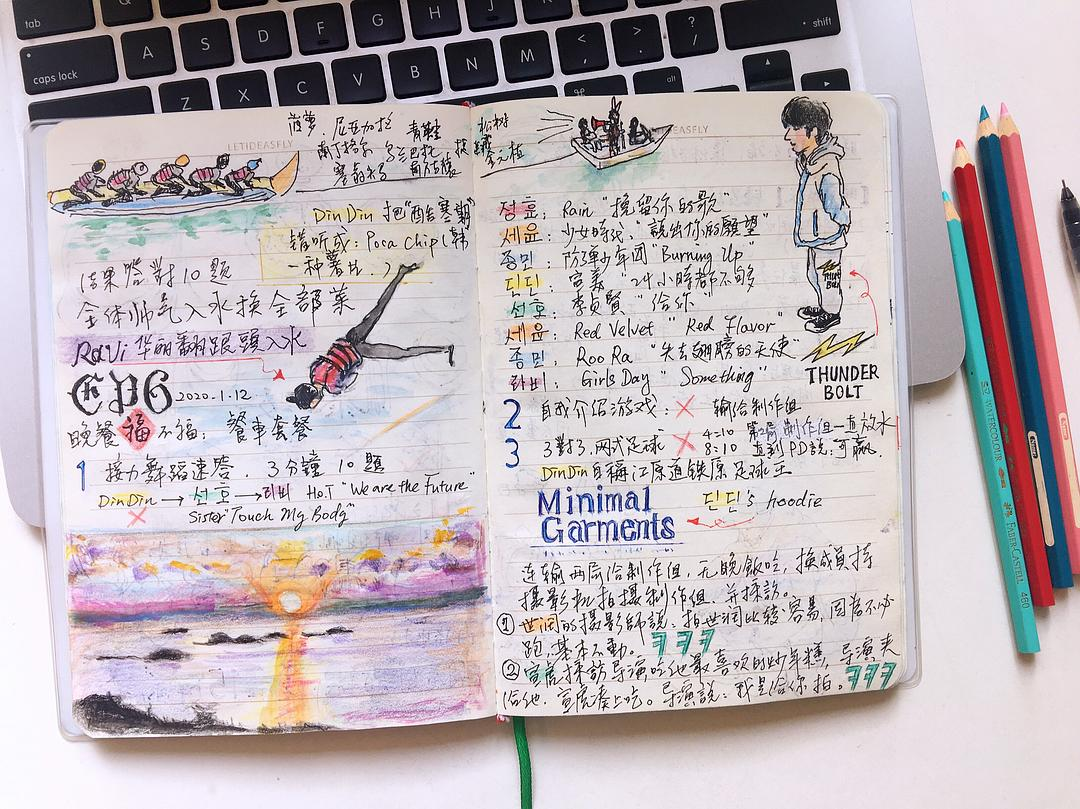 tab
caps lock
A S D F G H J K L
Z X C V B N M
< ,
> .
? /
shift
alt
⌘
LETIDEASFLY
菠萝.尼亚加拉 青鞋 松树
DinDin 把“酷寒期”
错听成：Poca Chip（韩
一种薯片.）
结果答對10題
全体帅气入水换全部菜
RaVi 华丽翻跟頭入水
EP6 2020.1.12
晚餐福不福：餐車套餐
1 接力舞蹈速答.3分鐘 10題
DinDin → 선호 → 라비 H.O.T “We are the Future”
Sister“Touch My Body”
EASFLY
정훈: Rain “挽留你的歌”
세윤: 少女時代“說出你的願望”
종민: 防彈少年团“Burning Up”
딘딘: 宣美 24小時都不夠
선호: 李貞賢“给你”
세윤: Red Velvet “Red Flavor”
종민: Roo Ra “失去翅膀的天使”
라비: Girls Day “Something”
THUNDER
BOLT
2 自我介绍游戏: ✗ 输给制作组
3 3對3.网式足球 ✗ 4:10 制作组一直放水
8:10 直到PD說:可赢.
DinDin自稱江原道鉄原足球王
Minimal
Garments
딘딘's hoodie
连输两局给制作组,无晚飯吃,换成員持
攝影机拍攝制作组.并採訪。
① 世润的攝影師說:拍世润比较容易,因为不必
跑,基本不動。ㅋㅋㅋ
② 宣虎採訪导演吃他最喜欢的炒年糕,导演夹
给他,宣虎凑上吃。导演說:我是给你拍。ㅋㅋㅋ
WATERCOLOUR
FABER-CASTELL 460